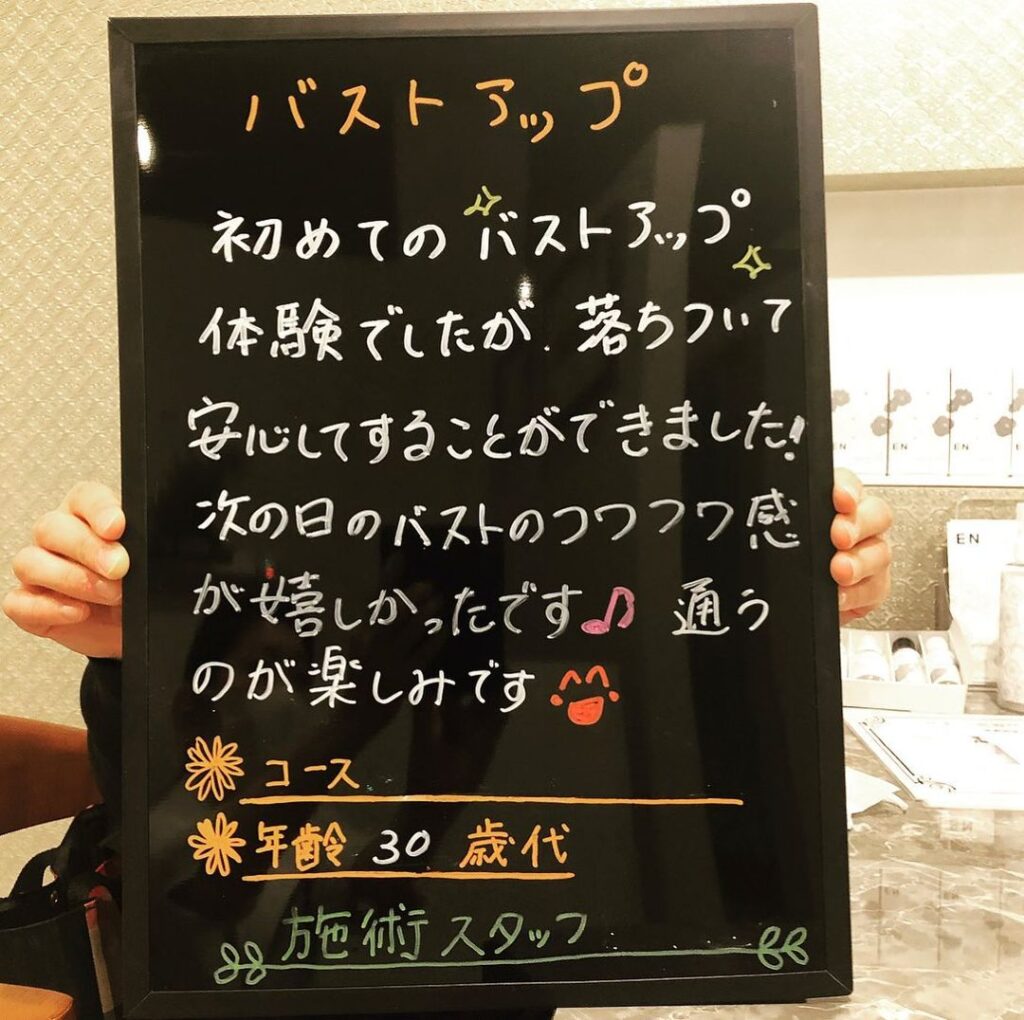 バストアップ
初めてのバストアップ
体験でしたが、落ちついて
安心してすることができました!
次の日のバストのフワフワ感
が嬉しかったです♪ 通う
のが楽しみです
コース
年齢 30 歳代
施術スタッフ
EN
EN
EN
EN